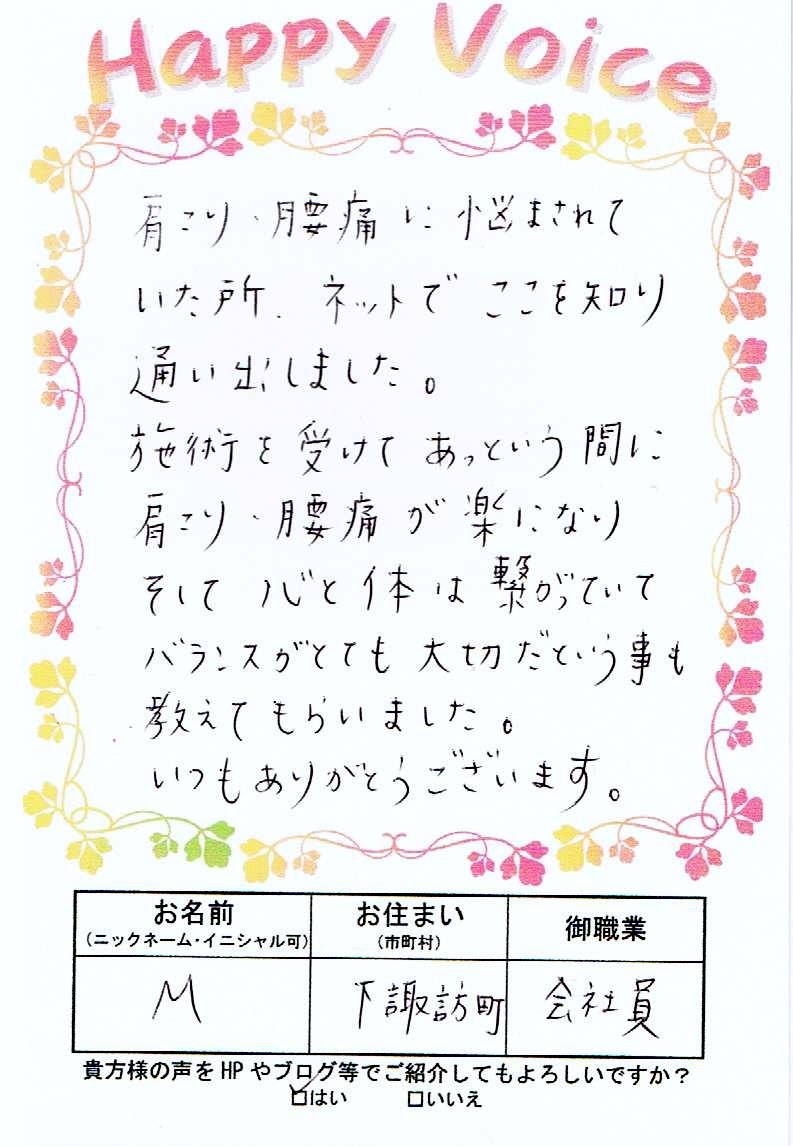 Happy Voice
肩こり・腰痛に悩まされて
いた所、ネットでここを知り
通い出しました。
施術を受けてあっという間に
肩こり・腰痛が楽になり
そして心と体は繋がっていて
バランスがとても大切だという事も
教えてもらいました。
いつもありがとうございます。
お名前 お住まい 御職業
(ニックネーム・イニシャル可) (市町村)
M 下諏訪町 会社員
貴方様の声をHPやブログ等でご紹介してもよろしいですか？
☑はい □いいえ